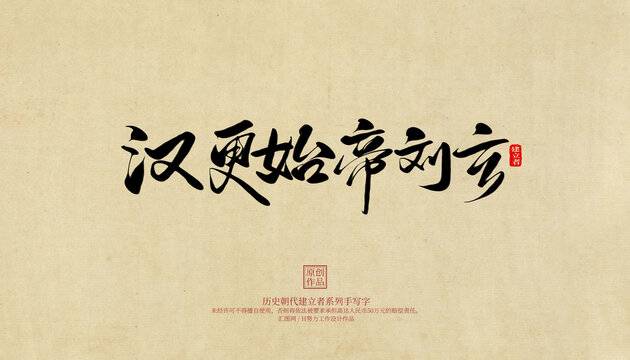 汉更始帝刘玄
建立者
原创
作品
历史朝代建立者系列手写字
未经许可不得擅自使用，否则将依法被要求承担高达人民币50万元的赔偿责任。
汇图网 / 日努力工作设计作品